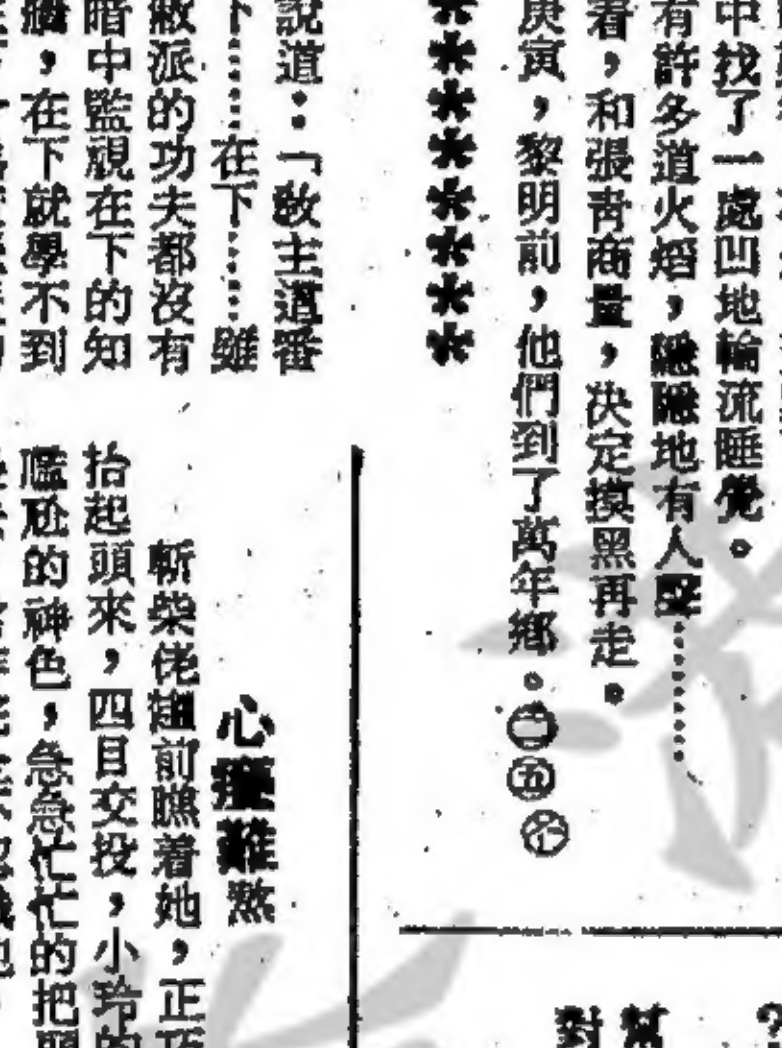 中找了一處凹地輪流睡覺。
有許多道火焰，隱隱地有人聲………
着，和張青商量，決定摸黑再走。
庚寅，黎明前，他們到了萬年鄉。㊁㊄
＊＊＊＊＊＊＊
說道：「敝主道番
下………在下………雖
敝派的功夫都沒有
暗中監視在下的知
，在下就學不到
心癢難熬
斬柴佬趨前瞧着她，正巧
抬起頭來，四目交投，小玲的
尷尬的神色，急急忙忙的把
對幫
？